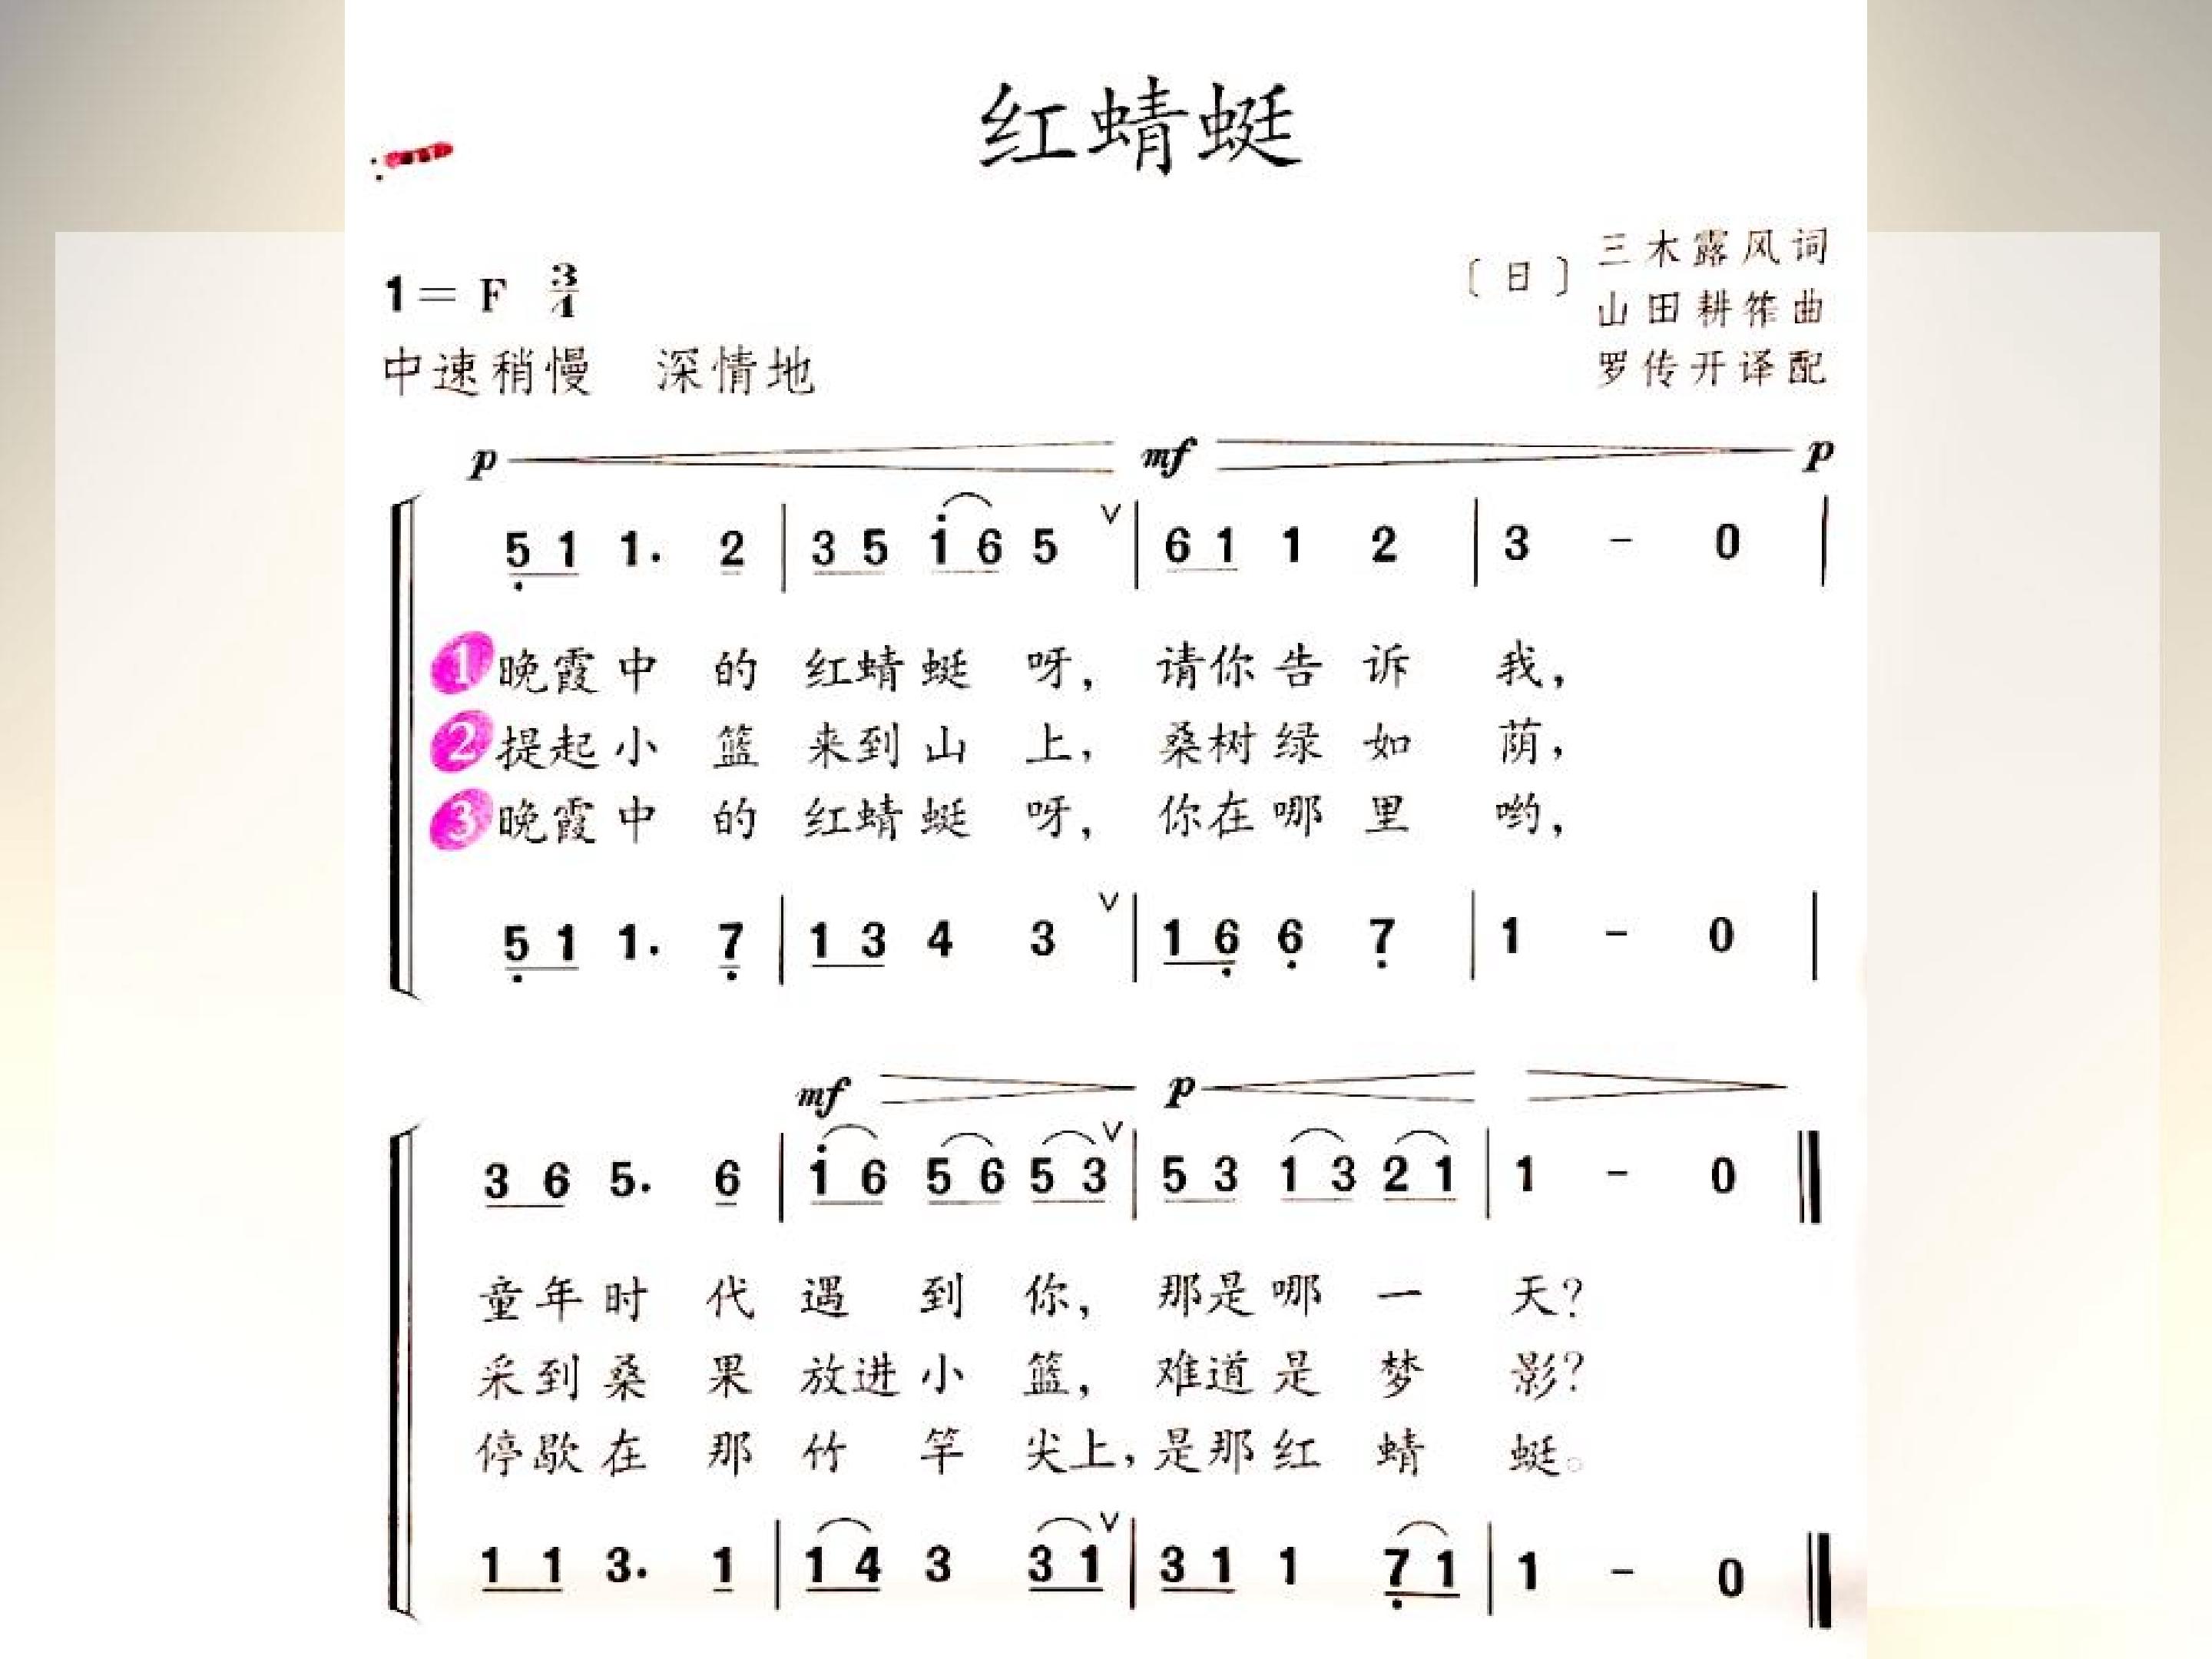 红蜻蜓
1 = F 3/4
〔日〕三木露风词
山田耕筰曲
罗传开译配
中速稍慢 深情地
p mf p
5̣ 1 1. 2 | 3 5 i 6 5 ∨ | 6 1 1 2 | 3 - 0 |
1 晚霞中的红蜻蜓呀，请你告诉我，
2 提起小篮来到山上，桑树绿如荫，
3 晚霞中的红蜻蜓呀，你在哪里哟，
5̣ 1 1. 7̣ | 1 3 4 3 ∨ | 1 6̣ 6̣ 7̣ | 1 - 0 |
mf p
3 6 5. 6 | i 6 5 6 5 3 ∨ | 5 3 1 3 2 1 | 1 - 0 ‖
童年时代遇到你，那是哪一天？
采到桑果放进小篮，难道是梦影？
停歇在那竹竿尖上，是那红蜻蜓。
1 1 3. 1 | 1 4 3 3 1 ∨ | 3 1 1 7̣ 1 | 1 - 0 ‖